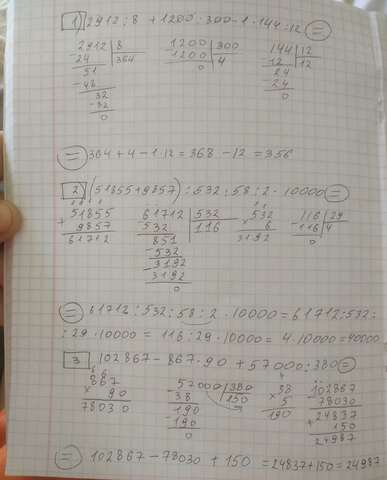 1) 2912 : 8 + 1200 : 300 - 1 · 144 : 12 =
2912 | 8
24 | 364
51
-48
32
-32
0
1200 | 300
1200 | 4
0
144 | 12
12 | 12
24
24
0
= 364 + 4 - 1 · 12 = 368 - 12 = 356
2) (51855 + 9857) : 532 : 58 : 2 · 10000 =
1 1 1 1
+ 51855
9857
61712
61712 | 532
532 | 116
851
-532
3192
-3192
0
1 1
× 532
6
3192
116 | 29
-116 | 4
0
= 61712 : 532 : 58 : 2 · 10000 = 61712 : 532 :
: 29 · 10000 = 116 : 29 · 10000 = 4 · 10000 = 40000
3 102867 - 867 · 90 + 57000 : 380 =
6 6
× 867
90
78030
57000 | 380
38 | 150
190
-190
0
4
× 38
5
190
102867
- 78030
24837
+ 150
24987
= 102867 - 78030 + 150 = 24837 + 150 = 24987